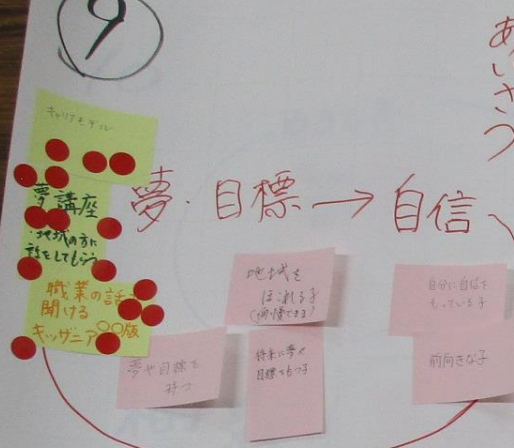 9
あいさつ
キャリアモデル
夢講座
・地域の方に
話をしてもらう
職業の話を
聞ける
キッザニア〇〇版
夢・目標→自信
地域を
ほこれる子
(自慢できる)
自分に自信を
もっている子
夢や目標を
持つ
将来に夢や
目標をもつ子
前向きな子